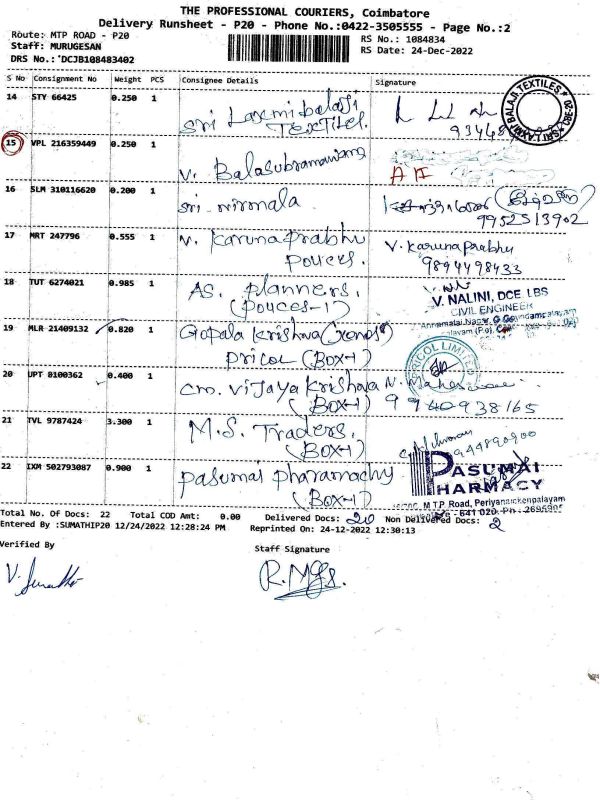 THE PROFESSIONAL COURIERS, Coimbatore
Delivery Runsheet - P20 - Phone No.:0422-3505555 - Page No.:2
Route: MTP ROAD - P20 RS No.: 1084834
Staff: MURUGESAN RS Date: 24-Dec-2022
DRS No.: DCJB108483402
S No Consignment No Weight PCS Consignee Details Signature
14 STY 66425 0.250 1 Sri Laxmi balaji
Textiles.
SRI LAXMI BALAJI TEXTILES
15 VPL 216359449 0.250 1 V. Balasubramaniam
16 SLM 310116620 0.200 1 Sri nirmala
9952513902
17 MRT 247796 0.555 1 V. Karuna Prabhu V. Karuna Prabhu
Pouces. 9894498433
18 TUT 6274021 0.985 1 AS. Planners.
(Pouces-1)
V. NALINI, DCE, LBS
CIVIL ENGINEER
19 MLR 21409132 0.820 1 Gopala Krishna
Pricol (Box-1)
PRICOL LIMITED
20 UPT 8100362 0.400 1 cm. Vijaya Krishna
(Box-1) 9940938165
21 TVL 9787424 3.300 1 M.S. Traders.
(Box-1) 9944890900
22 IXM 502793087 0.900 1 Pasumai Pharamachy
(Box-1)
PASUMAI
PHARMACY
M.T.P. Road, Periyanaickenpalayam
641 020. Ph : 2695905
Total No. Of Docs: 22 Total COD Amt: 0.00 Delivered Docs: 20 Non Delivered Docs: 2
Entered By :SUMATHIP20 12/24/2022 12:28:24 PM Reprinted On: 24-12-2022 12:30:13
Verified By Staff Signature